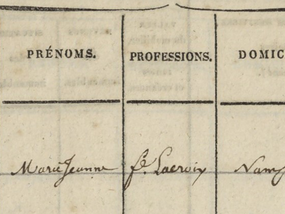 PRÉNOMS. PROFESSIONS. DOMIC
Marie Jeanne fe. Lacroix Nam